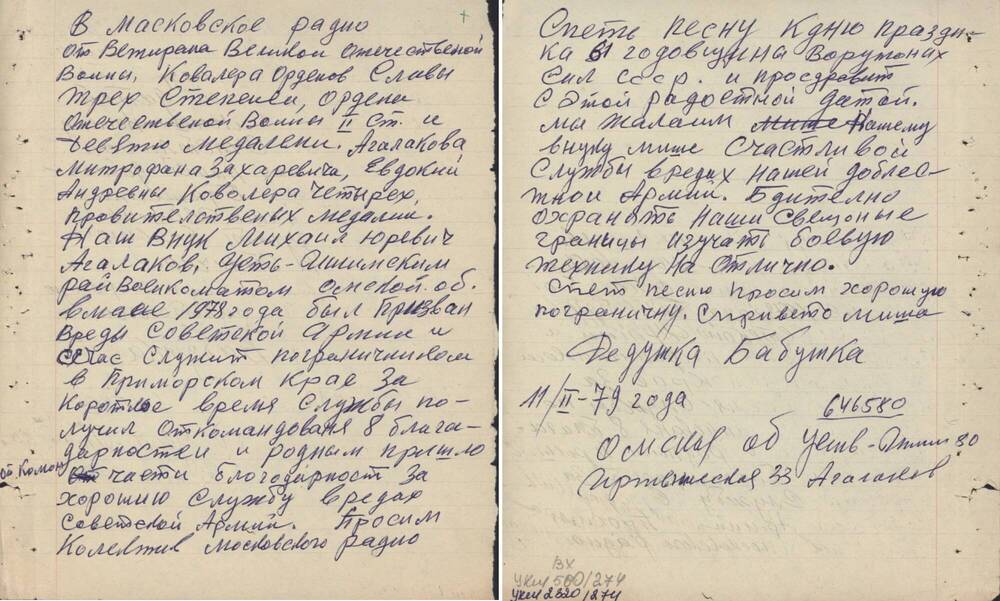 В Масковское радио
от Ветирана Великой отечественой
Воины, Ковалера Орденов Славы
трех Степеней, Ордена
Отечественой Воины II Ст. и
девятю медалеми. Агалакова
Митрофана Захаревича, Евдокий
Андревны Ковалера Четырех,
Правителственых медалии.
Наш Внук Михаил Юревич
Агалаков, Усть-Ишимским
рай Воинкоматом омской. об.
в мае 1978 года был Призван
вреды Советской Армии и
счас Служит пограничником
в Приморском Крае За
короткое время Службы по-
лучил От командованя 8 благо-
дарностей и родным пришло
от Коман
части благодарност За
хорошию Службу вредах
Советской Армии. Просим
Колектив московского радио
Спеть песну к дню праздни-
ка 61 годовщина Воружоных
Сил ссср. и проздравит
С Этой радостной датой.
мы жалаим Нашему
внуку мише Счастливой
Службы вредах нашей доблес-
тной Армий. Бдително
охранять наши Свещоные
границы изучать боевую
технику на отлично.
Спет песню просим хорошую
пограничну. Сприветом миша
Дедушка Бабушка
11/II-79 года
646580
Омская об Усть-Ишим 30
Иртышская 33 Агалаков
вх
УКМ 500/274
УКМ 2320/274